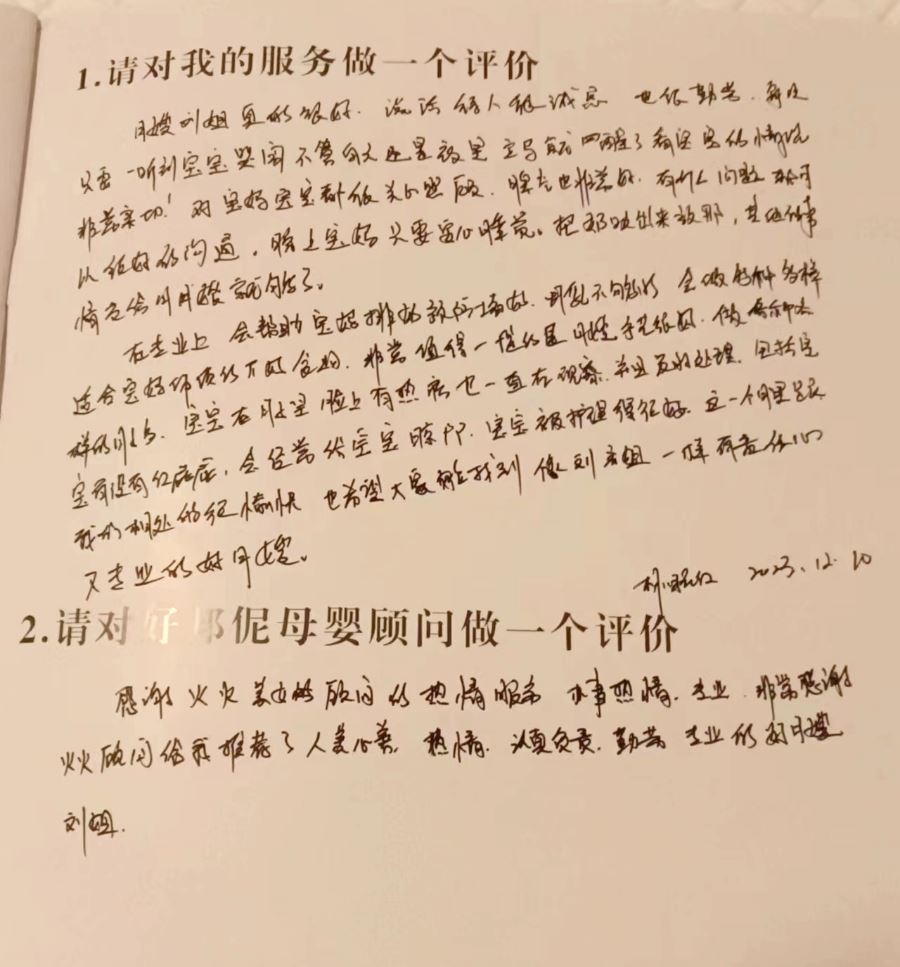 1.请对我的服务做一个评价
月嫂刘姐真的很好.说话待人很诚恳 也很勤劳.每次
只要一听到宝宝哭闹不管白天还是夜里 立马就醒了看宝宝的情况
非常亲切!对宝妈宝宝都很关心照顾. 有什么问题都可
以很好的沟通,晚上宝妈只要安心睡觉。把奶吸出来放那,其他的事
情交给月嫂就够了。
在专业上 会帮助宝妈排奶 会做各种各样
适合宝妈 非常值得一提的是月嫂手艺很好.做
样的月子 宝宝在月子里脸上有热疹也一直在观察.并且及时处理.包括宝
宝有没有红屁屁,会经常给宝宝晾PP.宝宝被护理得很好.这一个月里
我们相处的很愉快 也希望大家能找到像刘姐一样有责任心
又专业的好月嫂。
2023.12.10
2.请对好邦伲母婴顾问做一个评价
感谢火火美女顾问的热情服务 办事热情.专业.非常感谢
火火顾问给我推荐了人美心善.热情.认真负责.勤劳 专业的好月嫂
刘姐.